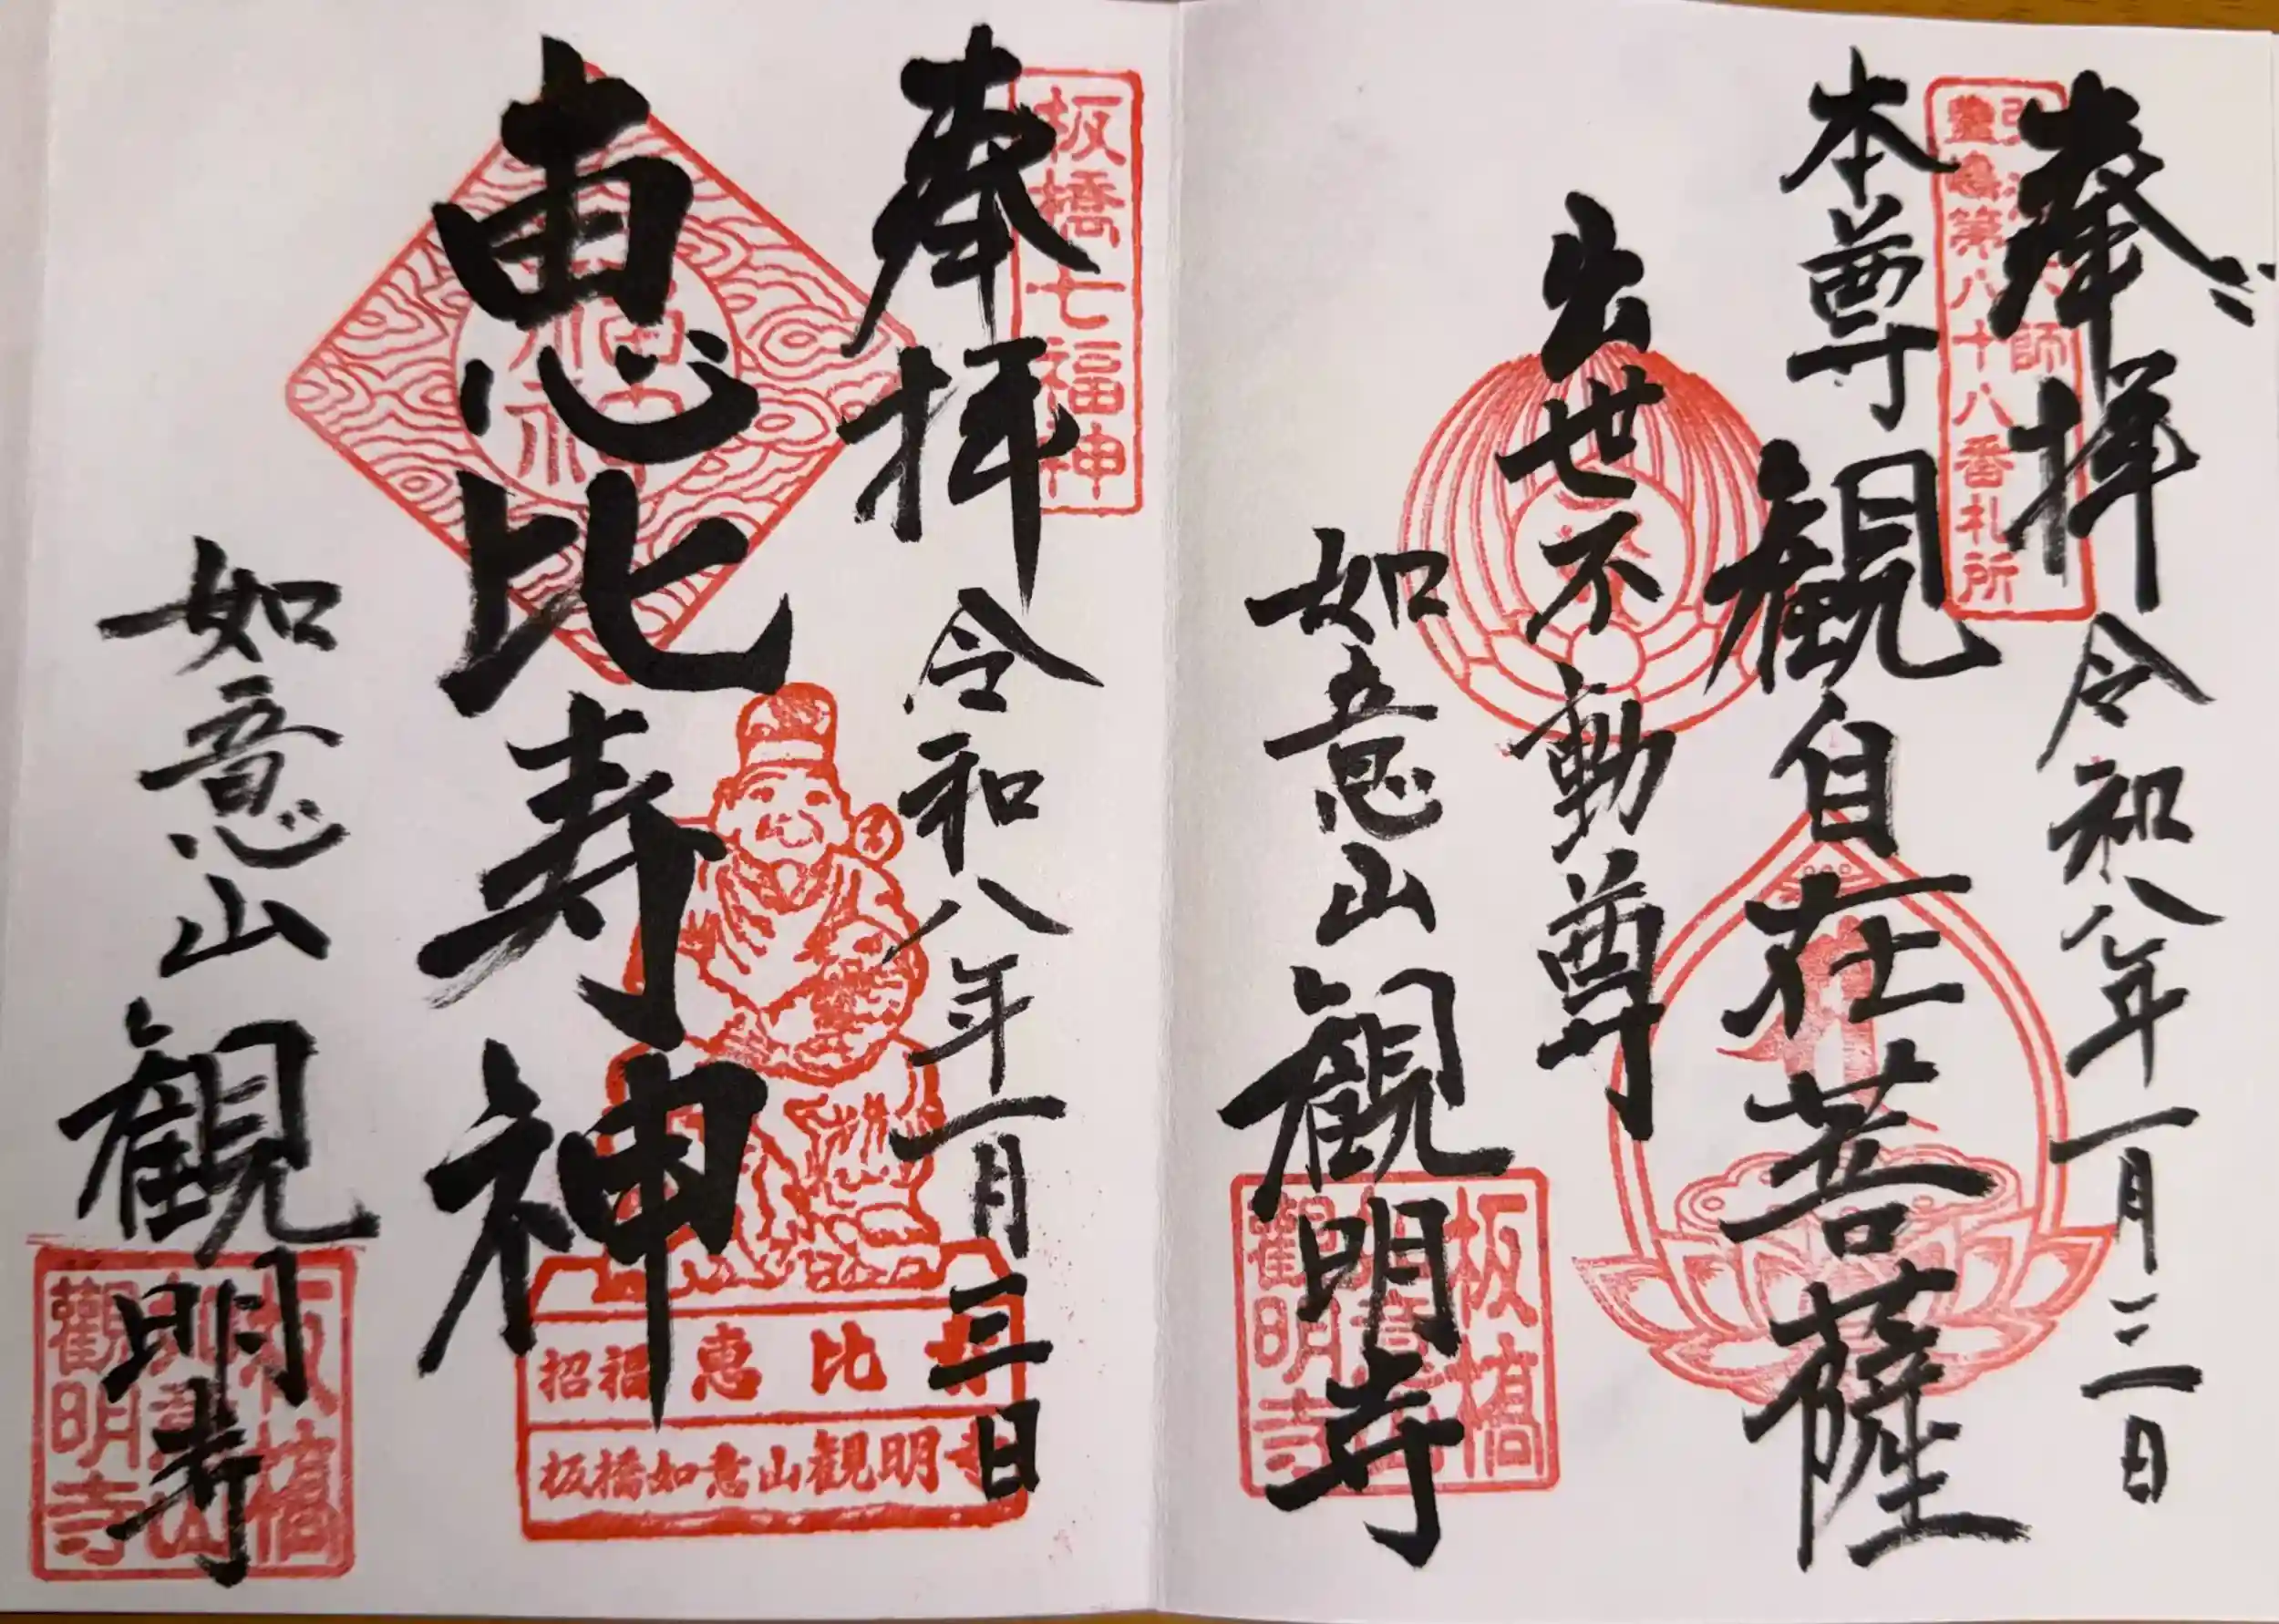 奉拝
豊島第八十八番札所
令和八年一月三日
本尊
観自在菩薩
出世不動尊
如意山
観明寺
板橋
觀明寺
板橋七福神
奉拝
令和八年一月三日
恵比寿神
招福 恵比寿
板橋如意山観明寺
如意山
観明寺
板橋
觀明寺